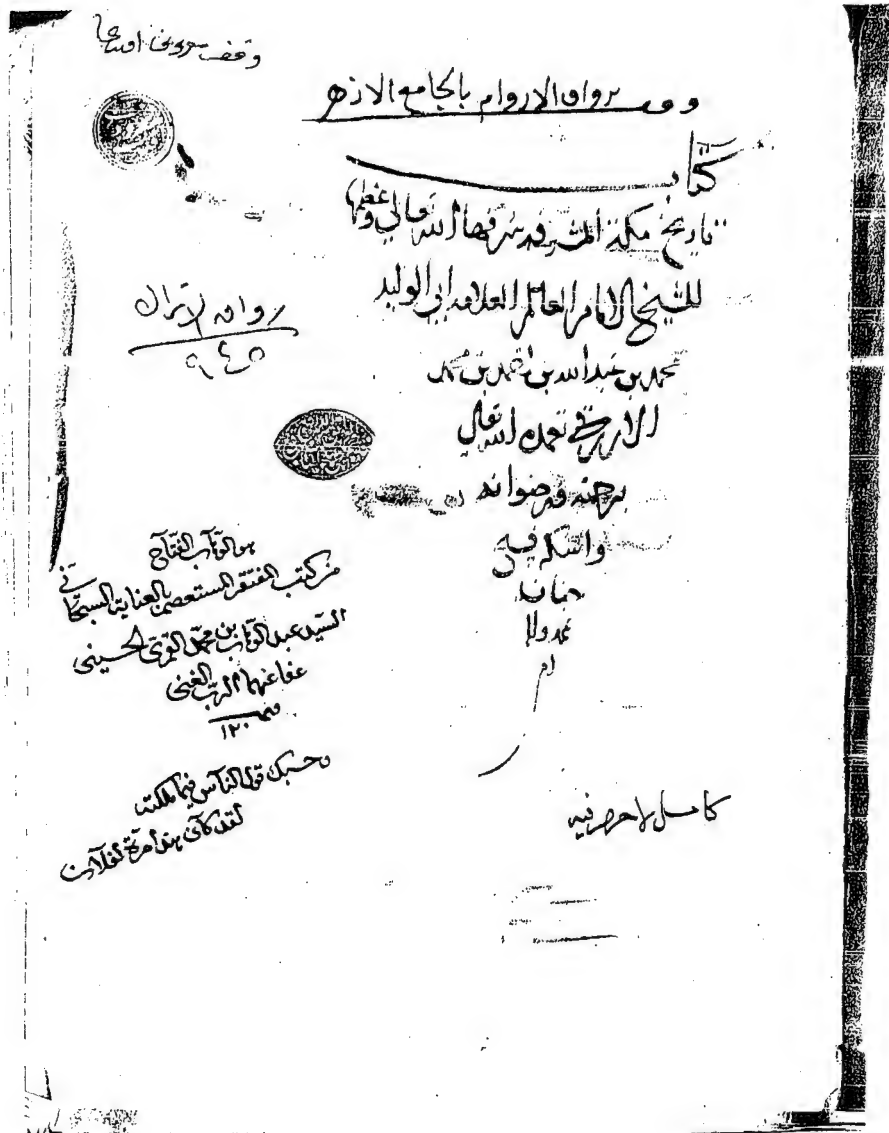 وقف
وقف برواق الاروام بالجامع الازهر
كتاب
تاريخ مكة المشرفه شرفها الله تعالي وعظمها
للشيخ الامام العالم العلامه ابي الوليد
محمد بن عبد الله بن احمد بن محمد
الازرقي تغمده الله تعالي
برحمته ورضوانه
واسكنه فسيح
جنانه
رواق الاتراك
٩٤٥
هو الوهاب الفتاح
من كتب الفقير المستعصم بالعناية السبحاني
السيد عبد الوهاب بن محمد الحسيني
عفا عنهما الرب الغني
١٢٠
وحسبك قول الناس فيما ملكته
لقد كان هذا مرة لفلان
كامل لا خرم فيه